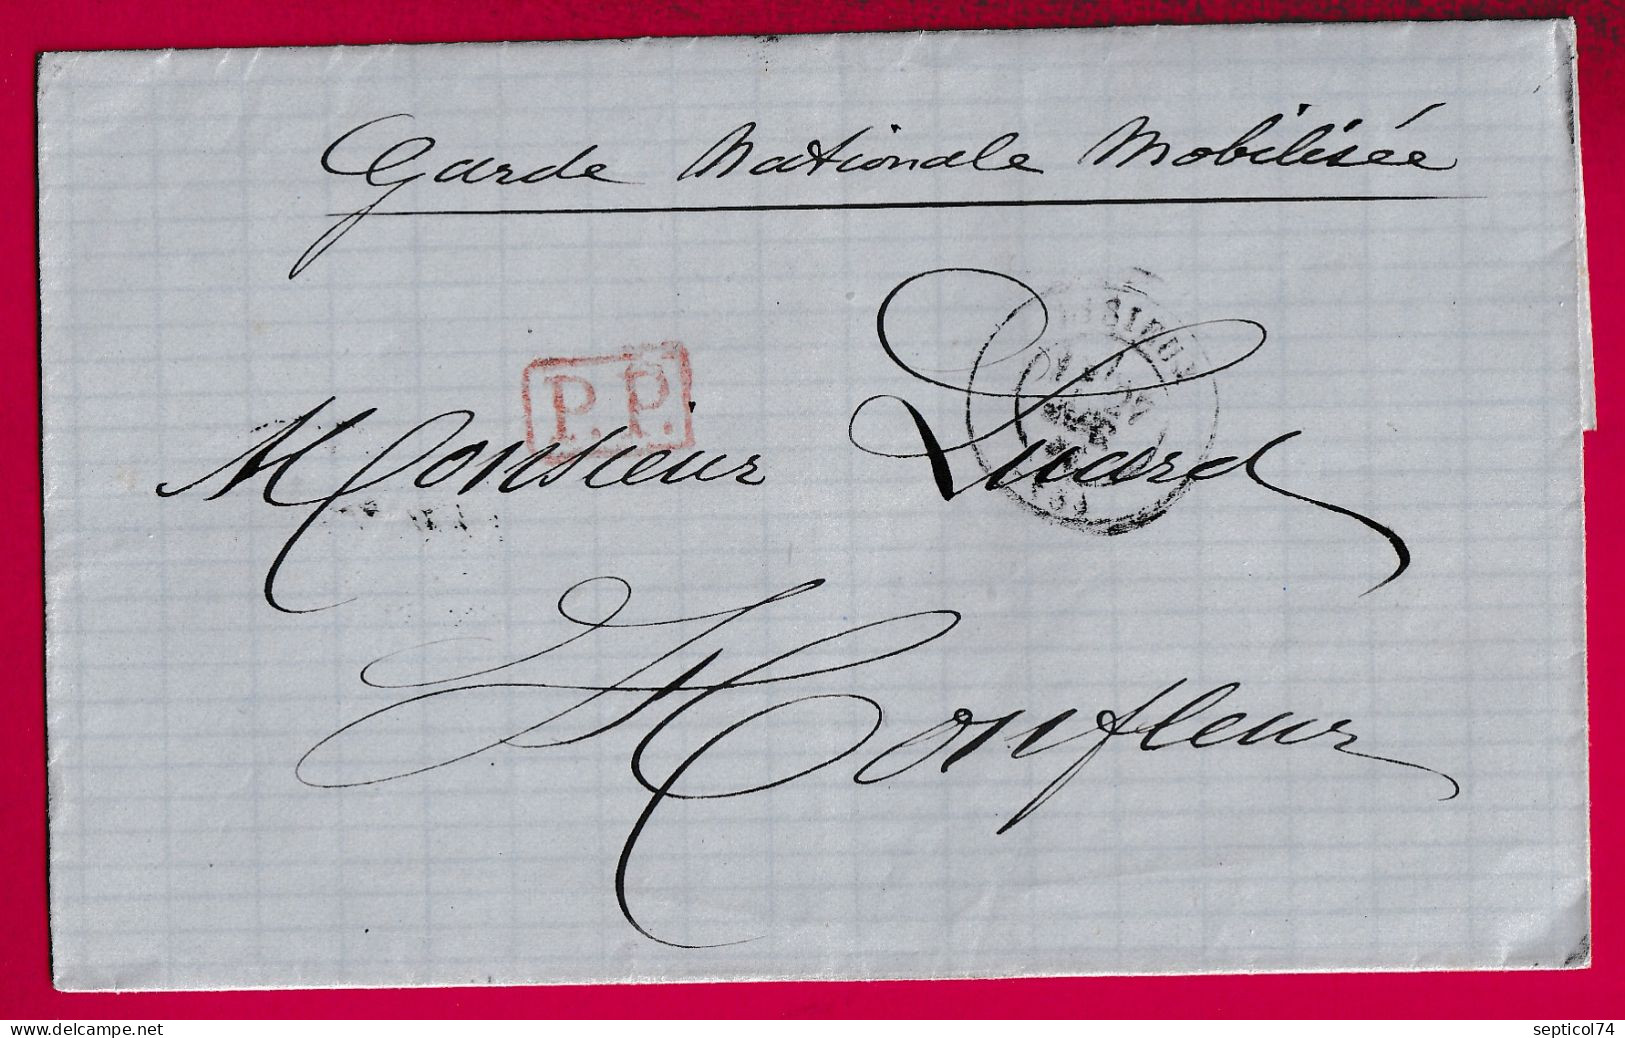 Garde Nationale Mobilisée
P.P.
Monsieur Luard
Honfleur
www.delcampe.net
septicol74